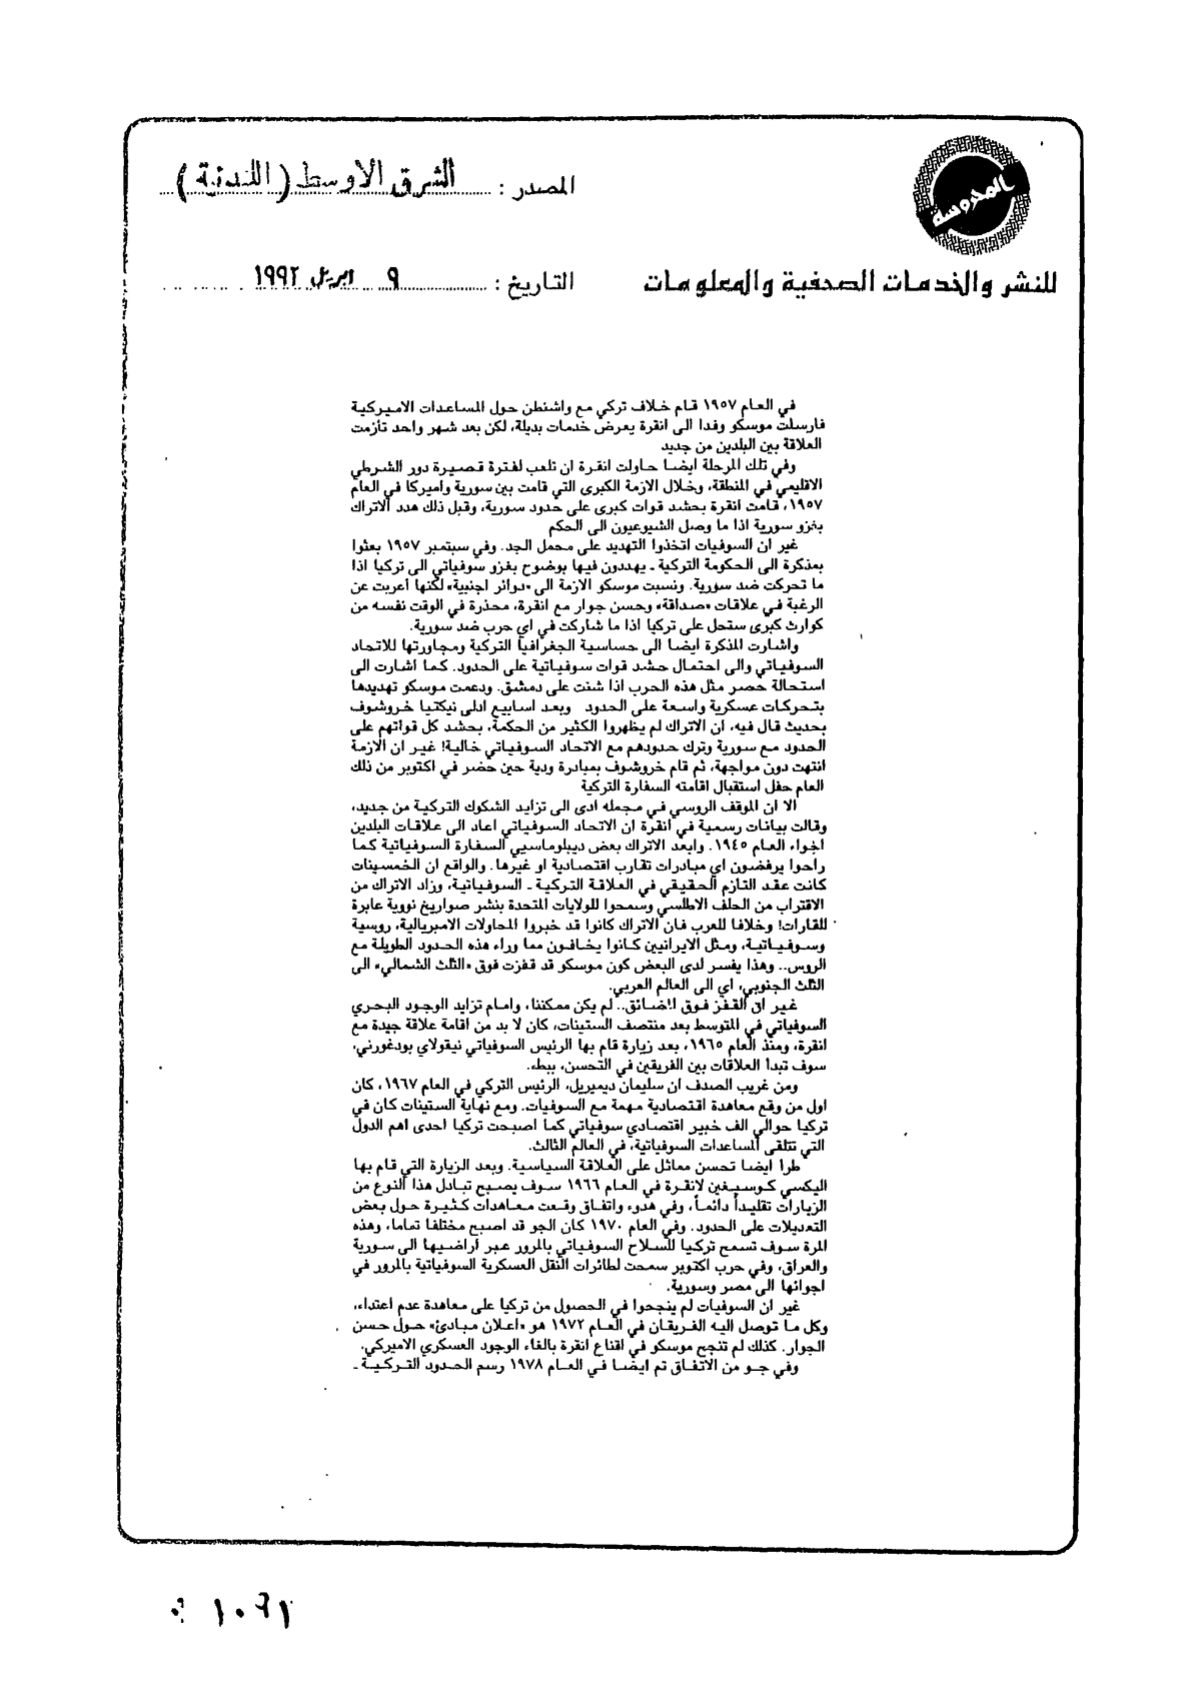 المحروسة
المصدر : الشرق الاوسط (اللندنية)
للنشر والخدمات الصحفية والمعلومات
التاريخ : ٩ ابريل ١٩٩٢
في العام ١٩٥٧ قام خلاف تركي مع واشنطن حول المساعدات الاميركية
فارسلت موسكو وفدا الى انقرة يعرض خدمات بديلة، لكن بعد شهر واحد تأزمت
العلاقة بين البلدين من جديد
وفي تلك المرحلة ايضا حاولت انقرة ان تلعب لفترة قصيرة دور الشرطي
الاقليمي في المنطقة، وخلال الازمة الكبرى التي قامت بين سورية واميركا في العام
١٩٥٧، قامت انقرة بحشد قوات كبرى على حدود سورية، وقبل ذلك هدد الاتراك
بغزو سورية اذا ما وصل الشيوعيون الى الحكم
غير ان السوفيات اتخذوا التهديد على محمل الجد. وفي سبتمبر ١٩٥٧ بعثوا
بمذكرة الى الحكومة التركية ـ يهددون فيها بوضوح بغزو سوفياتي الى تركيا اذا
ما تحركت ضد سورية. ونسبت موسكو الازمة الى «دوائر اجنبية» لكنها أعربت عن
الرغبة في علاقات «صداقة» وحسن جوار مع انقرة، محذرة في الوقت نفسه من
كوارث كبرى ستحل على تركيا اذا ما شاركت في اي حرب ضد سورية.
واشارت المذكرة ايضا الى حساسية الجغرافيا التركية ومجاورتها للاتحاد
السوفياتي والى احتمال حشد قوات سوفياتية على الحدود. كما اشارت الى
استحالة حصر مثل هذه الحرب اذا شنت على دمشق. ودعمت موسكو تهديدها
بتحركات عسكرية واسعة على الحدود وبعد اسابيع ادلى نيكتيا خروشوف
بحديث قال فيه، ان الاتراك لم يظهروا الكثير من الحكمة، بحشد كل قواتهم على
الحدود مع سورية وترك حدودهم مع الاتحاد السوفياتي خالية! غير ان الازمة
انتهت دون مواجهة، ثم قام خروشوف بمبادرة ودية حين حضر في اكتوبر من ذلك
العام حفل استقبال اقامته السفارة التركية
الا ان الموقف الروسي في مجمله ادى الى تزايد الشكوك التركية من جديد،
وقالت بيانات رسمية في انقرة ان الاتحاد السوفياتي اعاد الى علاقات البلدين
اجواء العام ١٩٤٥. وابعد الاتراك بعض ديبلوماسيي السفارة السوفياتية كما
راحوا يرفضون اي مبادرات تقارب اقتصادية او غيرها. والواقع ان الخمسينات
كانت عقد التازم الحقيقي في العلاقة التركية ـ السوفياتية، وزاد الاتراك من
الاقتراب من الحلف الاطلسي وسمحوا للولايات المتحدة بنشر صواريخ نووية عابرة
للقارات! وخلافا للعرب فان الاتراك كانوا قد خبروا المحاولات الامبريالية، روسية
وسوفياتية، ومثل الايرانيين كانوا يخافون مما وراء هذه الحدود الطويلة مع
الروس.. وهذا يفسر لدى البعض كون موسكو قد قفزت فوق «الثلث الشمالي» الى
الثلث الجنوبي، اي الى العالم العربي.
غير ان القفز فوق المضائق.. لم يكن ممكنا، وامام تزايد الوجود البحري
السوفياتي في المتوسط بعد منتصف الستينات، كان لا بد من اقامة علاقة جيدة مع
انقرة، ومنذ العام ١٩٦٥، بعد زيارة قام بها الرئيس السوفياتي نيقولاي بودغورني،
سوف تبدأ العلاقات بين الفريقين في التحسن، ببطء.
ومن غريب الصدف ان سليمان ديميريل، الرئيس التركي في العام ١٩٦٧، كان
اول من وقع معاهدة اقتصادية مهمة مع السوفيات. ومع نهاية الستينات كان في
تركيا حوالي الف خبير اقتصادي سوفياتي كما اصبحت تركيا احدى اهم الدول
التي تتلقى المساعدات السوفياتية، في العالم الثالث.
طرا ايضا تحسن مماثل على العلاقة السياسية. وبعد الزيارة التي قام بها
اليكسي كوسيغين لانقرة في العام ١٩٦٦ سوف يصبح تبادل هذا النوع من
الزيارات تقليداً دائماً، وفي هدوء واتفاق وقعت معاهدات كثيرة حول بعض
التعديلات على الحدود. وفي العام ١٩٧٠ كان الجو قد اصبح مختلفا تماما، وهذه
المرة سوف تسمح تركيا للسلاح السوفياتي بالمرور عبر أراضيها الى سورية
والعراق، وفي حرب اكتوبر سمحت لطائرات النقل العسكرية السوفياتية بالمرور في
اجوائها الى مصر وسورية.
غير ان السوفيات لم ينجحوا في الحصول من تركيا على معاهدة عدم اعتداء،
وكل ما توصل اليه الفريقان في العام ١٩٧٢ هو «اعلان مبادئ» حول حسن
الجوار. كذلك لم تنجح موسكو في اقناع انقرة بالغاء الوجود العسكري الاميركي.
وفي جو من الاتفاق تم ايضا في العام ١٩٧٨ رسم الحدود التركية ـ